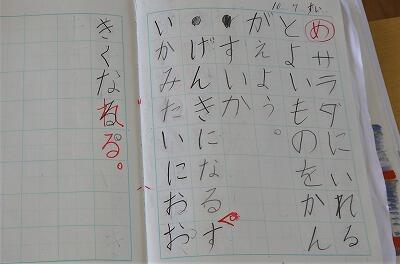 10. 7
めサラダにいれる
とよいものをかん
がえよう。
●すいか
●げんきになるす
いかみたいにおお
きくなる。